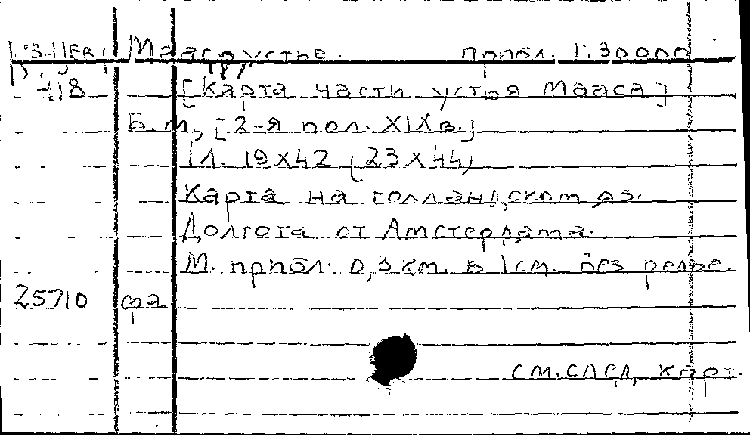 Маас, устье. прибл. 1:30000
418 [Карта части устья Мааса]
Б.м., [2-я пол. XIX в.]
1 л. 19x42 (23x44)
Карта на голландском яз.
Долгота от Амстердама.
М. прибл. 0,3 км. в 1 см. без релье.
25710 фа
см. след. карт.